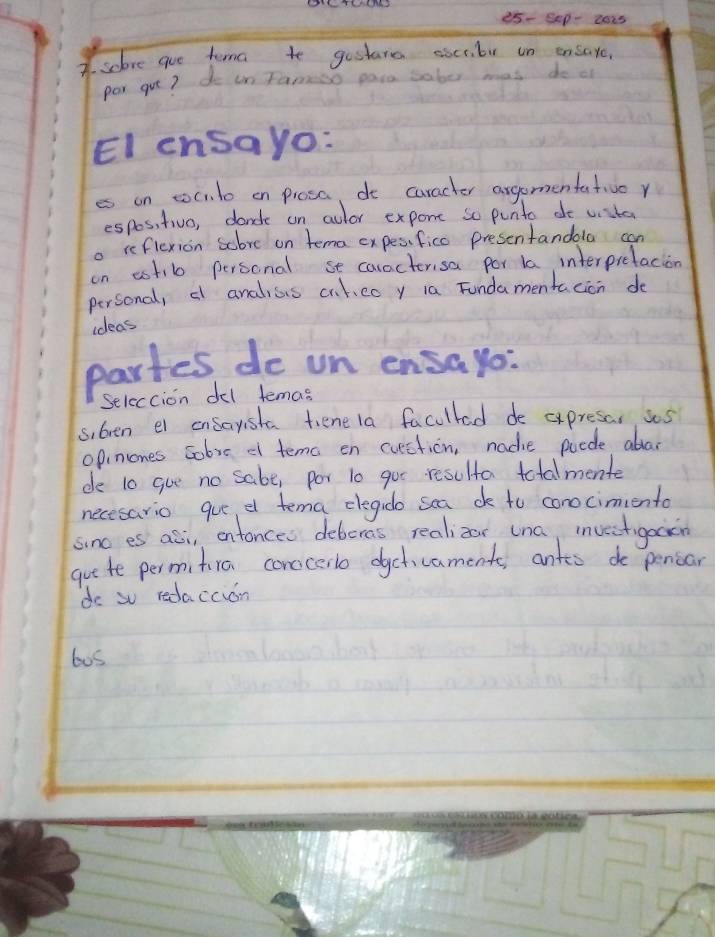 25- Sep- 2025
7. sobre que tema te gustaria escribir un ensayo,
por que? de un Famoso para saber mas de el
El ensayo:
es un escrito en prosa, de caracter argomentativo y
espositivo, donde un autor expone so punto de vista
o reflexión sobre un tema expesifico presentandola con
un estilo personal se caracterisa por la interpretación
personal, el analisis critico y la Fundamentación de
ideas
partes de un ensayo:
selección del tema:
sibien el ensayista tiene la facultad de expresar sos
opiniones sobre el tema en cuestión, nadie puede ablar
de lo que no sabe, por lo que resulta totalmente
necesario que el tema elegido sea de tu conocimiento
sino es asi, entonces deberas realizar una investigación
que te permitira conocerlo
antes de pensar
de su redacción
bus